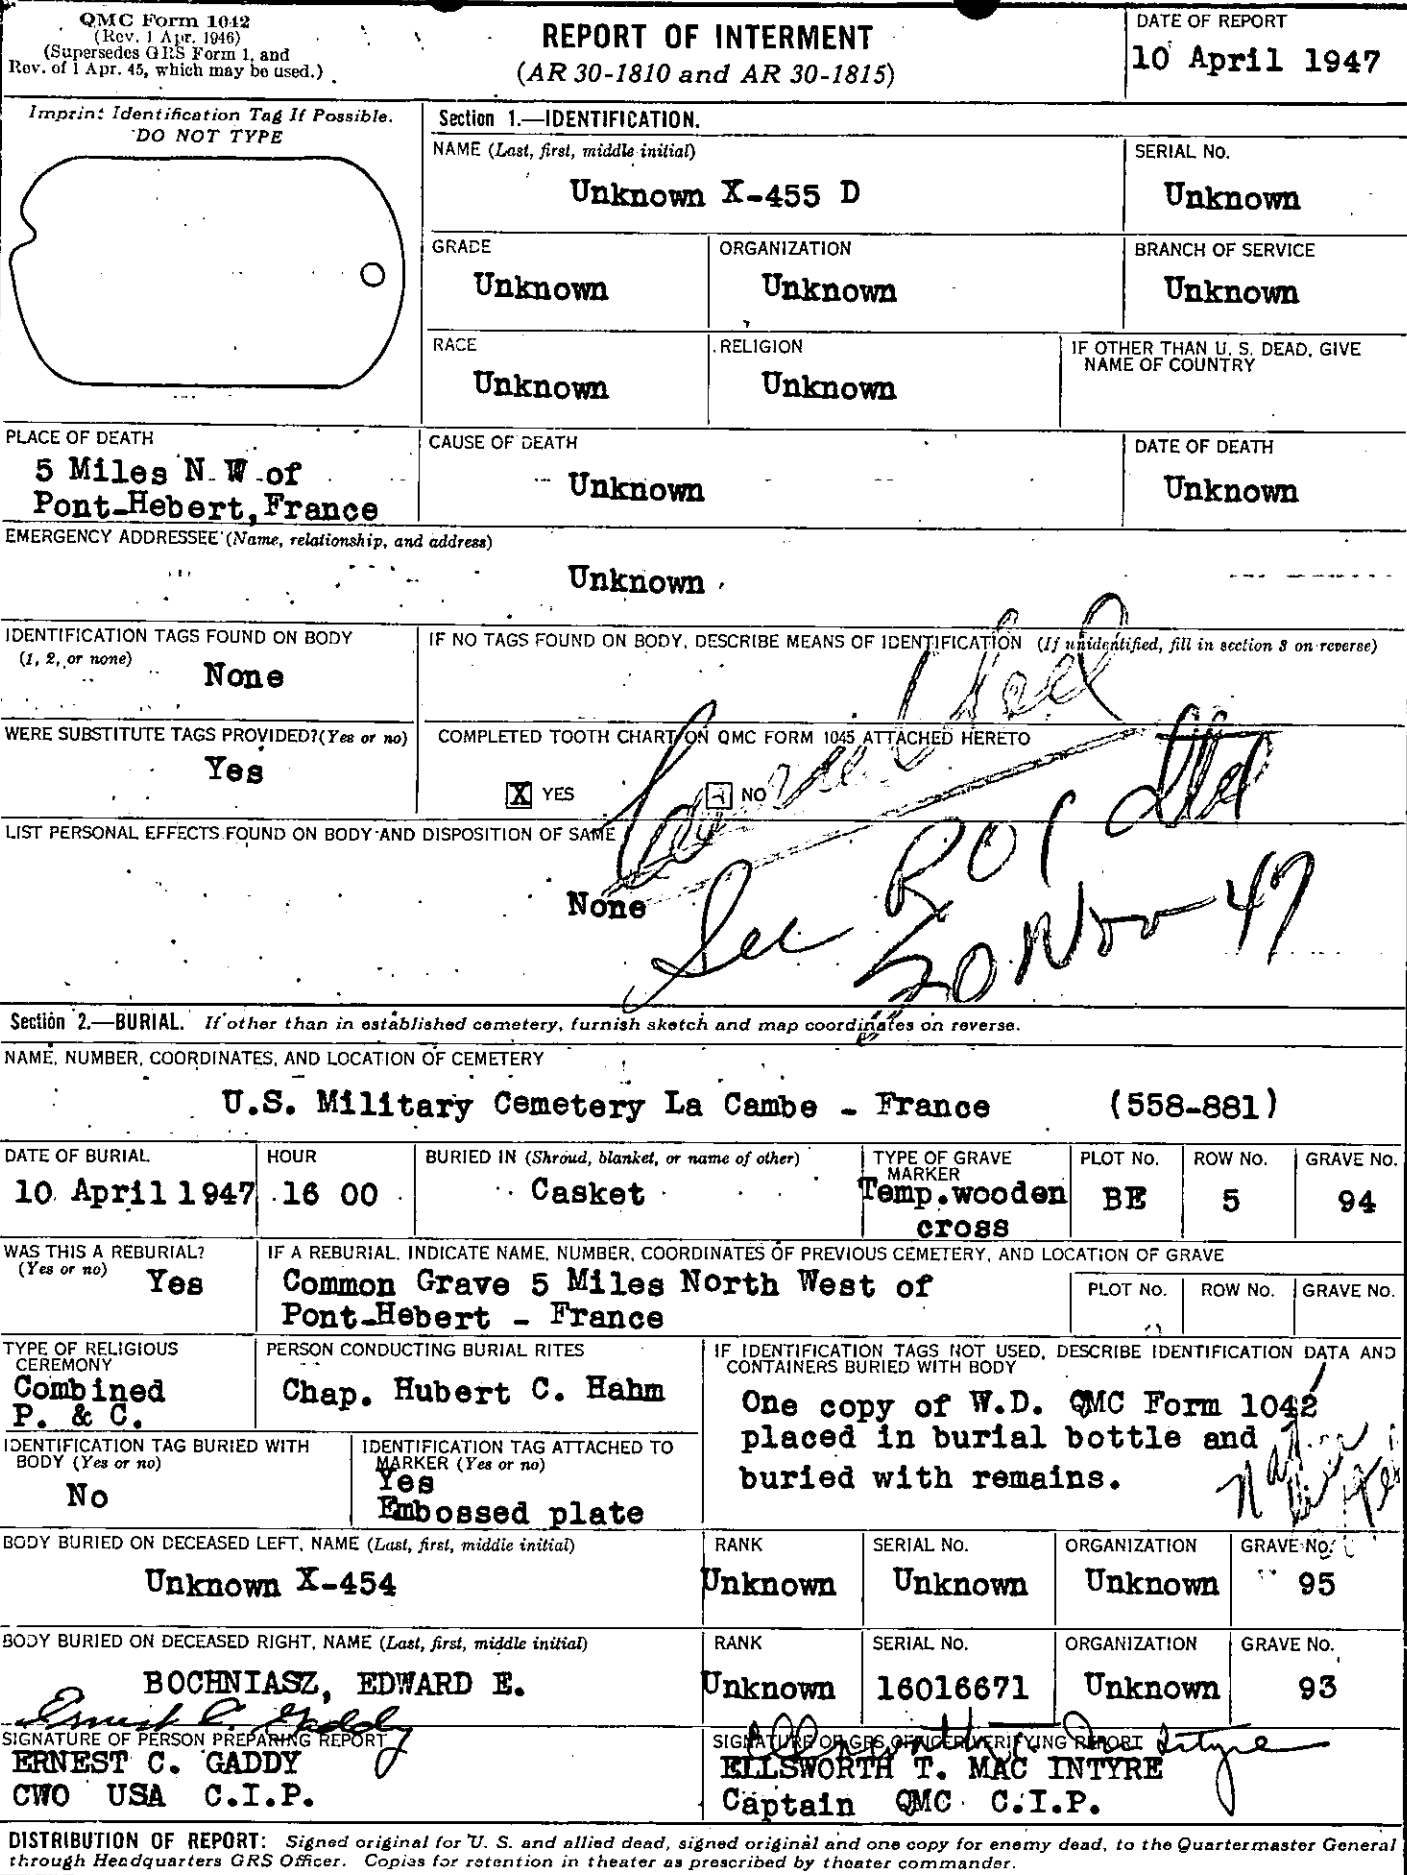 QMC Form 1042
(Rev. 1 Apr. 1946)
(Supersedes GRS Form 1, and
Rev. of 1 Apr. 45, which may be used.)
REPORT OF INTERMENT
(AR 30-1810 and AR 30-1815)
DATE OF REPORT
10 April 1947
Imprint Identification Tag If Possible.
DO NOT TYPE
Section 1.—IDENTIFICATION.
NAME (Last, first, middle initial)
Unknown X-455 D
SERIAL No.
Unknown
GRADE
Unknown
ORGANIZATION
Unknown
BRANCH OF SERVICE
Unknown
RACE
Unknown
RELIGION
Unknown
IF OTHER THAN U. S. DEAD, GIVE
NAME OF COUNTRY
PLACE OF DEATH
5 Miles N W of
Pont-Hebert, France
CAUSE OF DEATH
Unknown
DATE OF DEATH
Unknown
EMERGENCY ADDRESSEE (Name, relationship, and address)
Unknown
IDENTIFICATION TAGS FOUND ON BODY
(1, 2, or none)
None
IF NO TAGS FOUND ON BODY, DESCRIBE MEANS OF IDENTIFICATION (If unidentified, fill in section 3 on reverse)
WERE SUBSTITUTE TAGS PROVIDED? (Yes or no)
Yes
COMPLETED TOOTH CHART ON QMC FORM 1045 ATTACHED HERETO
X YES
NO
LIST PERSONAL EFFECTS FOUND ON BODY AND DISPOSITION OF SAME
None
See
20 Nov 47
Section 2.—BURIAL. If other than in established cemetery, furnish sketch and map coordinates on reverse.
NAME, NUMBER, COORDINATES, AND LOCATION OF CEMETERY
U.S. Military Cemetery La Cambe - France (558-881)
DATE OF BURIAL
10 April 1947
HOUR
16 00
BURIED IN (Shroud, blanket, or name of other)
Casket
TYPE OF GRAVE
MARKER
Temp.wooden
cross
PLOT No.
BE
ROW No.
5
GRAVE No.
94
WAS THIS A REBURIAL?
(Yes or no) Yes
IF A REBURIAL, INDICATE NAME, NUMBER, COORDINATES OF PREVIOUS CEMETERY, AND LOCATION OF GRAVE
Common Grave 5 Miles North West of
Pont-Hebert - France
PLOT No.
ROW No.
GRAVE No.
TYPE OF RELIGIOUS
CEREMONY
Combined
P. & C.
PERSON CONDUCTING BURIAL RITES
Chap. Hubert C. Hahm
IF IDENTIFICATION TAGS NOT USED, DESCRIBE IDENTIFICATION DATA AND
CONTAINERS BURIED WITH BODY
One copy of W.D. QMC Form 1042
placed in burial bottle and
buried with remains.
IDENTIFICATION TAG BURIED WITH
BODY (Yes or no)
No
IDENTIFICATION TAG ATTACHED TO
MARKER (Yes or no)
Yes
Embossed plate
BODY BURIED ON DECEASED LEFT, NAME (Last, first, middle initial)
Unknown X-454
RANK
Unknown
SERIAL No.
Unknown
ORGANIZATION
Unknown
GRAVE No.
95
BODY BURIED ON DECEASED RIGHT, NAME (Last, first, middle initial)
BOCHNIASZ, EDWARD E.
RANK
Unknown
SERIAL No.
16016671
ORGANIZATION
Unknown
GRAVE No.
93
Ernest C. Gaddy
SIGNATURE OF PERSON PREPARING REPORT
ERNEST C. GADDY
CWO USA C.I.P.
SIGNATURE OF GRS OFFICER VERIFYING REPORT
ELLSWORTH T. MAC INTYRE
Captain QMC C.I.P.
DISTRIBUTION OF REPORT: Signed original for U. S. and allied dead, signed original and one copy for enemy dead, to the Quartermaster General
through Headquarters GRS Officer. Copies for retention in theater as prescribed by theater commander.